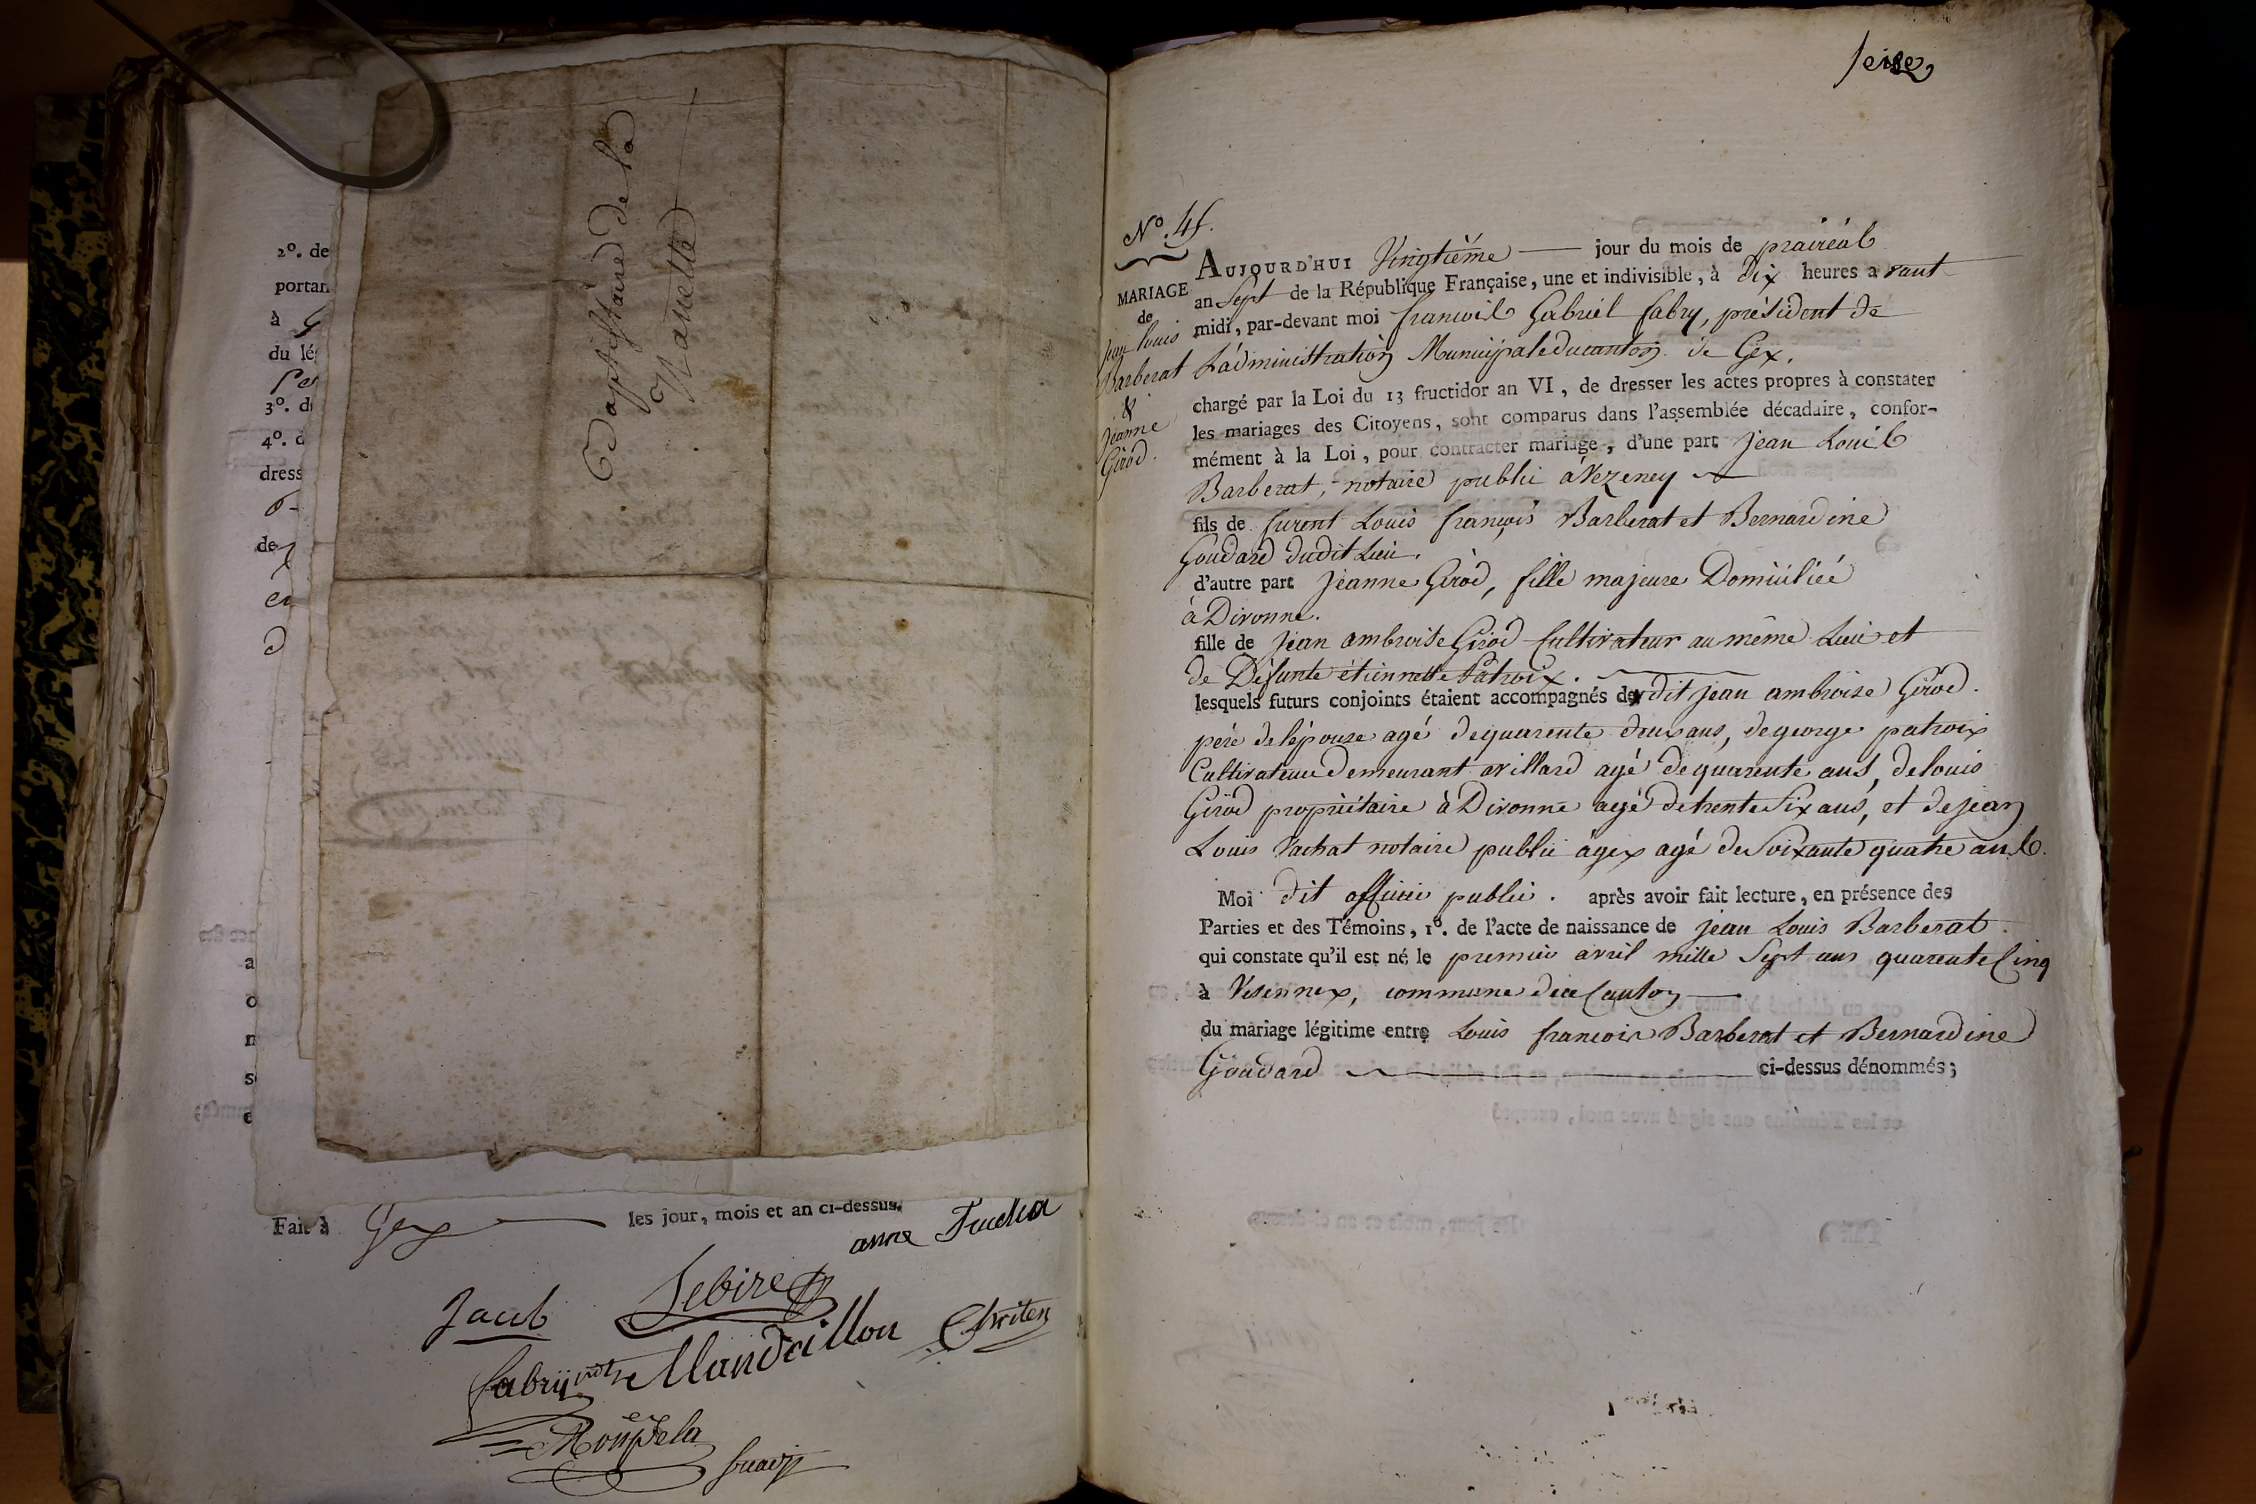 2º. de
portan
à G
du lé
3º. d
4º. d
dress
de
en
d
a
o
n
s
e
Baptistaire de la
Mariette
Fait à Gex les jour, mois et an ci-dessus.
anne
Jacob
Fabry
Mandrillon
seize
Nº. 45.
MARIAGE
de
jean louis
Barberat
&
Jeanne
Girod.
AUJOURD'HUI Vingtième jour du mois de prairéal
an Sept de la République Française, une et indivisible, à Dix heures avant
midi, par-devant moi françois Gabriel fabry, président de
L'administration Municipale du canton de Gex.
chargé par la Loi du 13 fructidor an VI, de dresser les actes propres à constater
les mariages des Citoyens, sont comparus dans l'assemblée décadaire, confor-
mément à la Loi, pour contracter mariage, d'une part jean Louis
Barberat, notaire public à Vezeney
fils de furent Louis françois Barberat et Bernardine
Goudard dudit Lieu.
d'autre part Jeanne Girod, fille majeure Domiciliée
à Divonne.
fille de jean ambroise Girod Cultivateur au même Lieu et
de Défunte étiennette Patroix.
lesquels futurs conjoints étaient accompagnés dudit jean ambroise Girod.
père de l'épouse agé de quarente deux ans, de george patroix
Cultivateur demeurant a villard agé de quarente ans, de louis
Girod propriétaire à Divonne agé de trente Six ans, et de jean
Louis Vachat notaire public à gex agé de Soixante quatre ans.
Moi dit officier public. après avoir fait lecture, en présence des
Parties et des Témoins, 1º. de l'acte de naissance de jean Louis Barberat.
qui constate qu'il est né le premier avril mille Sept cens quarente Cinq
à Vesennex, commune de ce Canton
du mariage légitime entre Louis françois Barberat et Bernardine
Goudard ci-dessus dénommés;